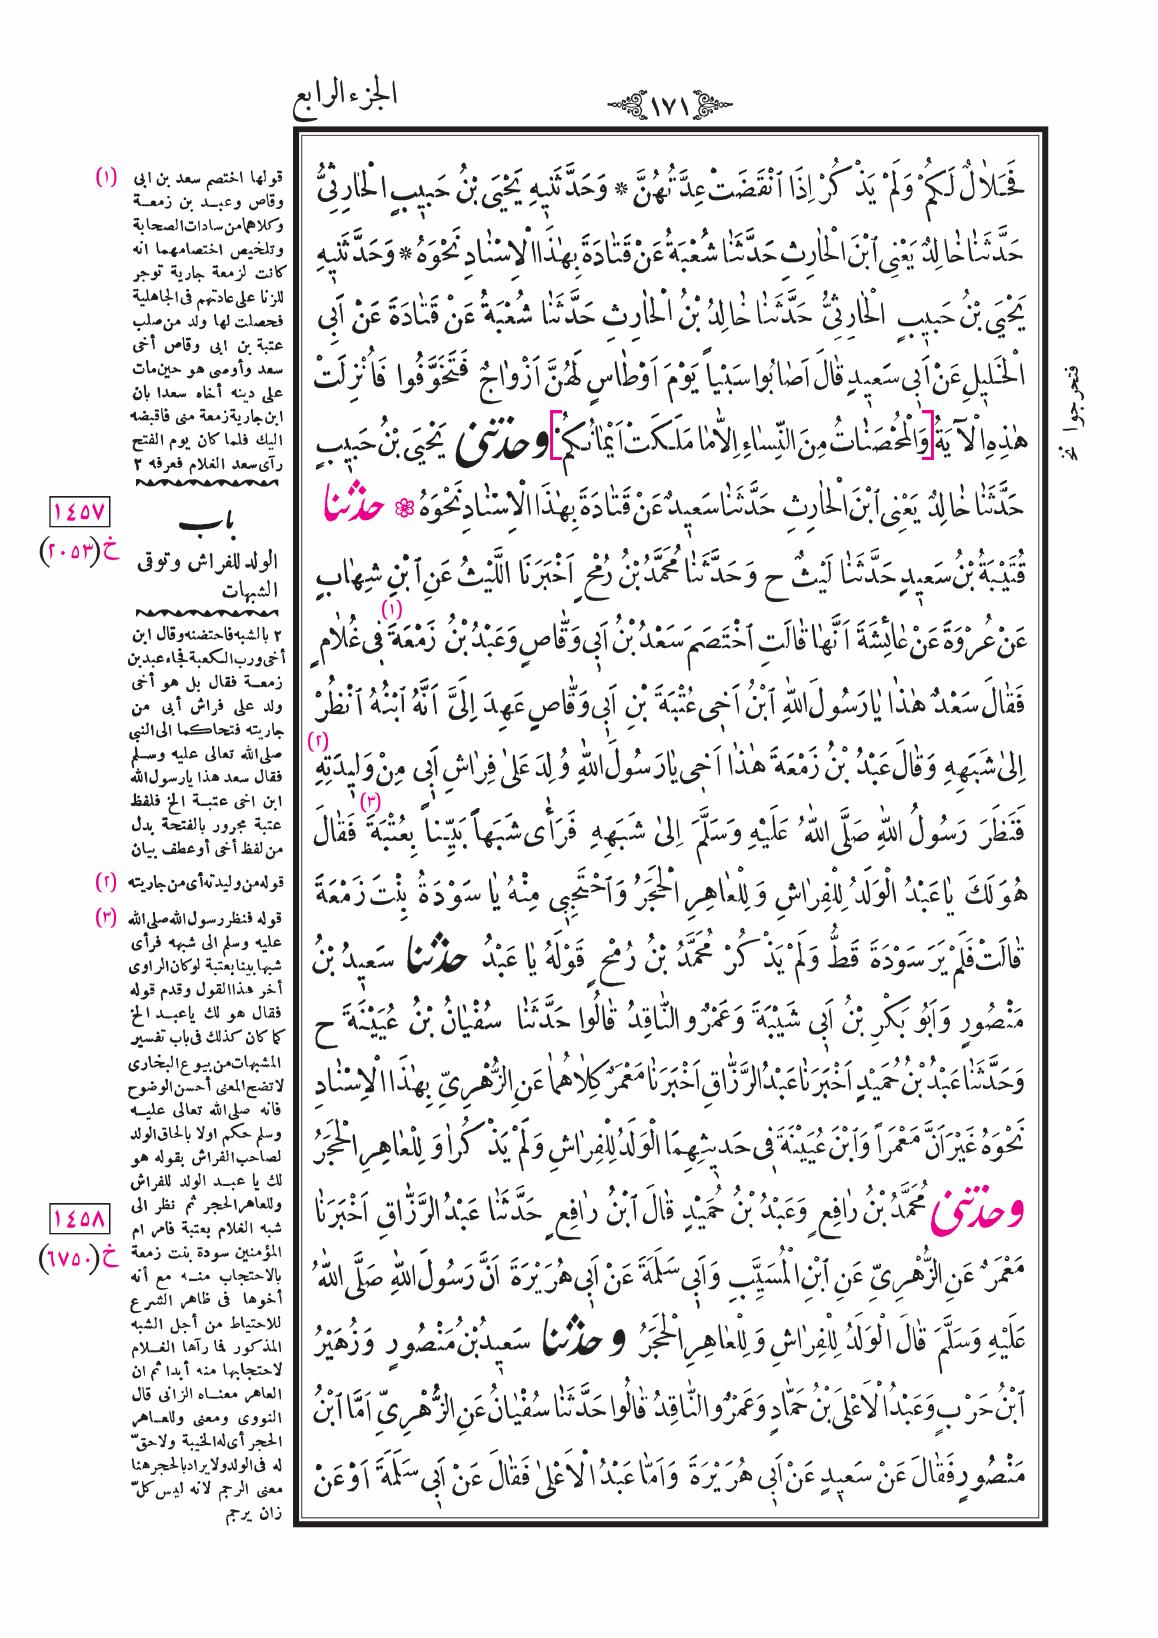 الجزء الرابع
١٧١
فَحَلَالٌ لَكُمْ وَلَمْ يَذْكُرْ إِذَا ٱنْقَضَتْ عِدَّتُهُنَّ * وَحَدَّثَنِيهِ يَحْيَى بْنُ حَبِيبٍ الْحَارِثِيُّ
حَدَّثَنَا خَالِدٌ يَعْنِى ٱبْنَ الْحَارِثِ حَدَّثَنَا شُعْبَةُ عَنْ قَتَادَةَ بِهٰذَا الْاِسْنَادِ نَحْوَهُ * وَحَدَّثَنِيهِ
يَحْيَى بْنُ حَبِيبٍ الْحَارِثِيُّ حَدَّثَنَا خَالِدُ بْنُ الْحَارِثِ حَدَّثَنَا شُعْبَةُ عَنْ قَتَادَةَ عَنْ اَبِى
الْخَلِيلِ عَنْ اَبِى سَعِيدٍ قَالَ اَصَابُوا سَبْياً يَوْمَ اَوْطَاسٍ لَهُنَّ اَزْوَاجٌ فَتَخَوَّفُوا فَاُنْزِلَتْ
هٰذِهِ الْآيَةُ [وَالْمُحْصَنَاتُ مِنَ النِّسَاءِ اِلَّا مَا مَلَكَتْ اَيْمَانُكُمْ] وحدثنى يَحْيَى بْنُ حَبِيبٍ
حَدَّثَنَا خَالِدٌ يَعْنِى ٱبْنَ الْحَارِثِ حَدَّثَنَا سَعِيدٌ عَنْ قَتَادَةَ بِهٰذَا الْاِسْنَادِ نَحْوَهُ * حدثنا
قُتَيْبَةُ بْنُ سَعِيدٍ حَدَّثَنَا لَيْثٌ ح وَحَدَّثَنَا مُحَمَّدُ بْنُ رُمْحٍ اَخْبَرَنَا اللَّيْثُ عَنِ ٱبْنِ شِهَابٍ
عَنْ عُرْوَةَ عَنْ عَائِشَةَ اَنَّهَا قَالَتِ ٱخْتَصَمَ سَعْدُ بْنُ اَبِى وَقَّاصٍ وَعَبْدُ بْنُ زَمْعَةَ (١) فِى غُلَامٍ
فَقَالَ سَعْدٌ هٰذَا يَا رَسُولَ اللّٰهِ ٱبْنُ اَخِى عُتْبَةَ بْنِ اَبِى وَقَّاصٍ عَهِدَ اِلَىَّ اَنَّهُ ٱبْنُهُ ٱنْظُرْ
اِلىٰ شَبَهِهِ وَقَالَ عَبْدُ بْنُ زَمْعَةَ هٰذَا اَخِى يَا رَسُولَ اللّٰهِ وُلِدَ عَلىٰ فِرَاشِ اَبِى مِنْ وَلِيدَتِهِ (٢)
فَنَظَرَ رَسُولُ اللّٰهِ صَلَّى اللّٰهُ عَلَيْهِ وَسَلَّمَ اِلىٰ شَبَهِهِ فَرَأَى شَبَهاً بَيِّناً بِعُتْبَةَ (٣) فَقَالَ
هُوَ لَكَ يَا عَبْدُ الْوَلَدُ لِلْفِرَاشِ وَلِلْعَاهِرِ الْحَجَرُ وَٱحْتَجِبِى مِنْهُ يَا سَوْدَةُ بِنْتَ زَمْعَةَ
قَالَتْ فَلَمْ يَرَ سَوْدَةَ قَطُّ وَلَمْ يَذْكُرْ مُحَمَّدُ بْنُ رُمْحٍ قَوْلَهُ يَا عَبْدُ حدثنا سَعِيدُ بْنُ
مَنْصُورٍ وَاَبُو بَكْرِ بْنُ اَبِى شَيْبَةَ وَعَمْرٌو النَّاقِدُ قَالُوا حَدَّثَنَا سُفْيَانُ بْنُ عُيَيْنَةَ ح
وَحَدَّثَنَا عَبْدُ بْنُ حُمَيْدٍ اَخْبَرَنَا عَبْدُ الرَّزَّاقِ اَخْبَرَنَا مَعْمَرٌ كِلَاهُمَا عَنِ الزُّهْرِىِّ بِهٰذَا الْاِسْنَادِ
نَحْوَهُ غَيْرَ اَنَّ مَعْمَراً وَٱبْنَ عُيَيْنَةَ فِى حَدِيثِهِمَا الْوَلَدُ لِلْفِرَاشِ وَلَمْ يَذْكُرَا وَلِلْعَاهِرِ الْحَجَرُ
وحدثنى مُحَمَّدُ بْنُ رَافِعٍ وَعَبْدُ بْنُ حُمَيْدٍ قَالَ ٱبْنُ رَافِعٍ حَدَّثَنَا عَبْدُ الرَّزَّاقِ اَخْبَرَنَا
مَعْمَرٌ عَنِ الزُّهْرِىِّ عَنِ ٱبْنِ الْمُسَيَّبِ وَاَبِى سَلَمَةَ عَنْ اَبِى هُرَيْرَةَ اَنَّ رَسُولَ اللّٰهِ صَلَّى اللّٰهُ
عَلَيْهِ وَسَلَّمَ قَالَ الْوَلَدُ لِلْفِرَاشِ وَلِلْعَاهِرِ الْحَجَرُ وحدثنا سَعِيدُ بْنُ مَنْصُورٍ وَزُهَيْرُ
ٱبْنُ حَرْبٍ وَعَبْدُ الْاَعْلَى بْنُ حَمَّادٍ وَعَمْرٌو النَّاقِدُ قَالُوا حَدَّثَنَا سُفْيَانُ عَنِ الزُّهْرِىِّ اَمَّا ٱبْنُ
مَنْصُورٍ فَقَالَ عَنْ سَعِيدٍ عَنْ اَبِى هُرَيْرَةَ وَاَمَّا عَبْدُ الْاَعْلىٰ فَقَالَ عَنْ اَبِى سَلَمَةَ اَوْ عَنْ
فتحرجوا نخ
(١) قولها اختصم سعد بن ابى
وقاص وعبد بن زمعة
وكلاهما من سادات الصحابة
وتلخيص اختصامهما انه
كانت لزمعة جارية توجر
للزنا على عادتهم فى الجاهلية
فحصلت لها ولد من صلب
عتبة بن ابى وقاص أخى
سعد وأوصى هو حين مات
على دينه أخاه سعدا بان
ابن جارية زمعة منى فاقبضه
اليك فلما كان يوم الفتح
رآى سعد الغلام فعرفه ٢
١٤٥٧
خ (٢٠٥٣)
باب
الولد للفراش وتوقى
الشبهات
٢ بالشبه فاحتضنه وقال ابن
أخى ورب الكعبة فجاء عبد بن
زمعة فقال بل هو أخى
ولد على فراش أبى من
جاريته فتحاكما الى النبى
صلى الله تعالى عليه وسلم
فقال سعد هذا يا رسول الله
ابن اخى عتبة الخ فلفظ
عتبة مجرور بالفتحة بدل
من لفظ أخى أو عطف بيان
(٢) قوله من وليدته أى من جاريته
(٣) قوله فنظر رسول الله صلى الله
عليه وسلم الى شبهه فرأى
شبها بينا بعتبة لو كان الراوى
أخر هذا القول وقدم قوله
فقال هو لك يا عبد الخ
كما كان كذلك فى باب تفسير
المشبهات من بيوع البخارى
لا تضح المعنى أحسن الوضوح
فانه صلى الله تعالى عليه
وسلم حكم اولا بالحاق الولد
لصاحب الفراش بقوله هو
لك يا عبد الولد للفراش
وللعاهر الحجر ثم نظر الى
شبه الغلام بعتبة فامر ام
المؤمنين سودة بنت زمعة
بالاحتجاب منه مع أنه
أخوها فى ظاهر الشرع
للاحتياط من أجل الشبه
المذكور فما رآها الغلام
لاحتجابها منه أبدا ثم ان
العاهر معناه الزانى قال
النووى ومعنى وللعاهر
الحجر أى له الخيبة ولا حقّ
له فى الولد ولا يراد بالحجر هنا
معنى الرجم لانه ليس كلّ
زان يرجم
١٤٥٨
خ (٦٧٥٠)